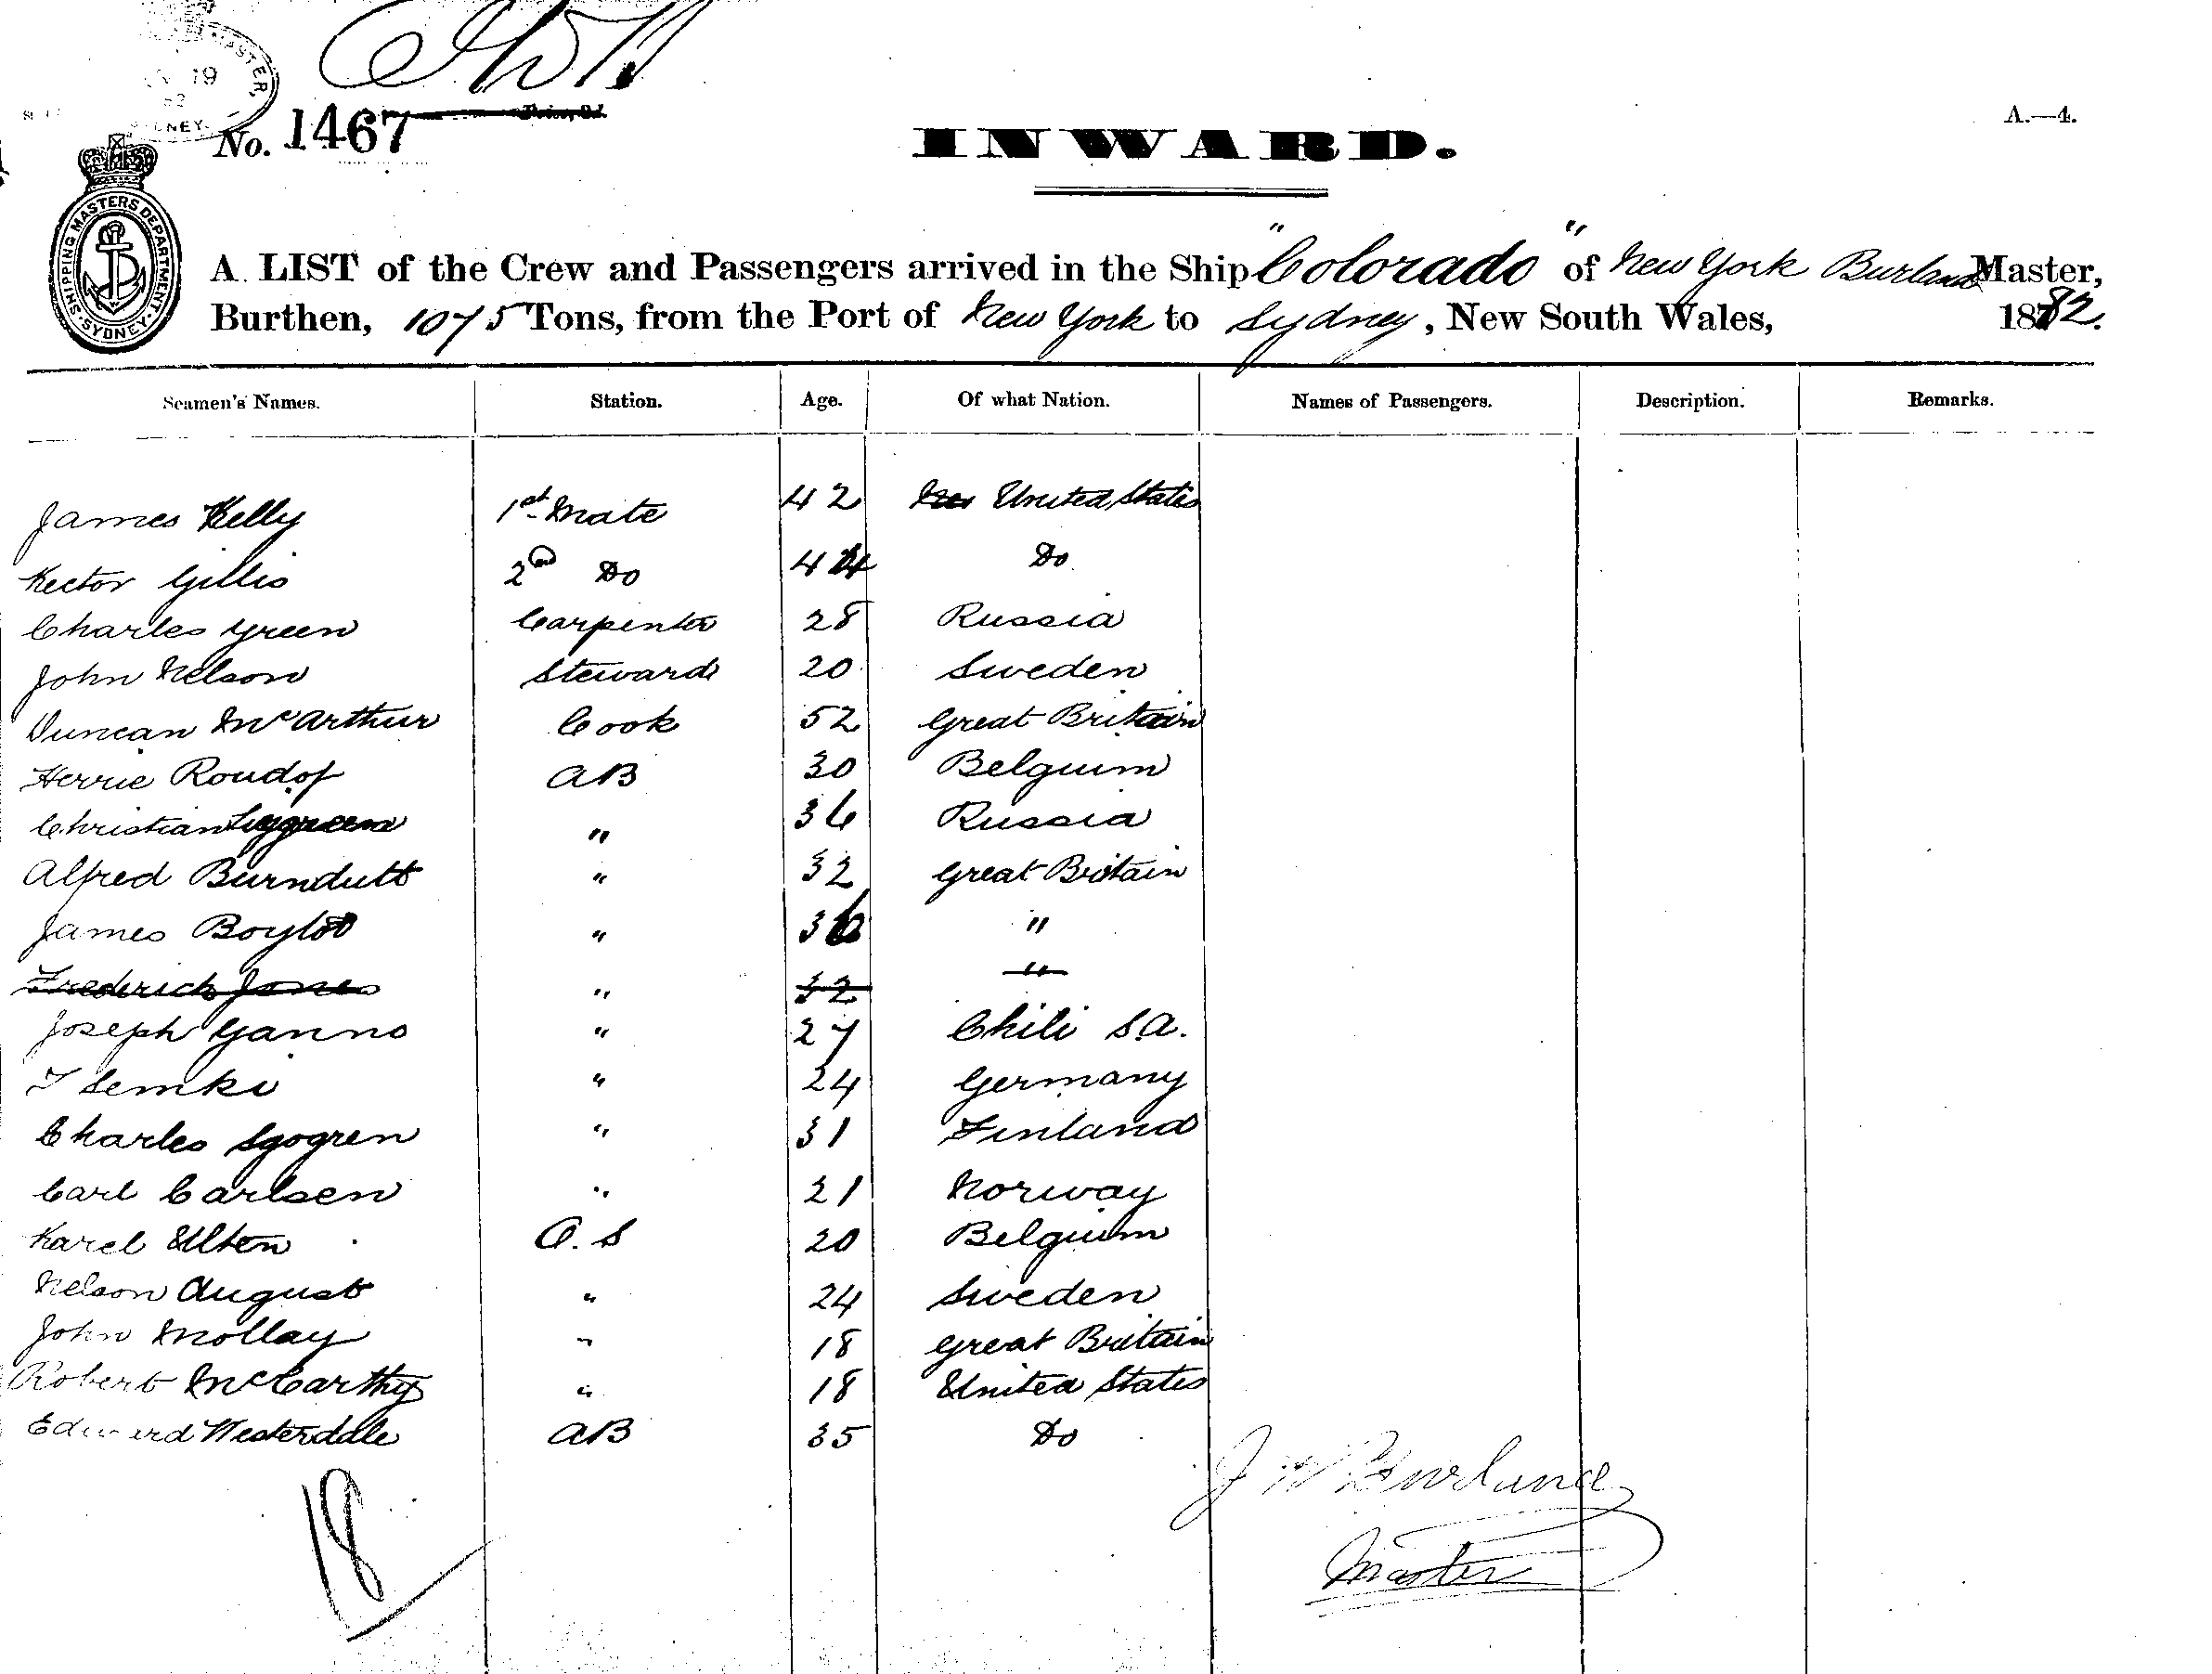 19
No. 1467
A.—4.
INWARD.
SHIPPING MASTERS DEPARTMENT · SYDNEY ·
A LIST of the Crew and Passengers arrived in the Ship "Colorado" of New York Burland Master,
Burthen, 1075 Tons, from the Port of New York to Sydney, New South Wales, 1882.
Seamen's Names. Station. Age. Of what Nation. Names of Passengers. Description. Remarks.
James Kelly 1st Mate 42 United States
Hector Gillis 2nd Do 44 Do
Charles Green Carpenter 28 Russia
John Nelson Steward 20 Sweden
Duncan McArthur Cook 52 Great Britain
Herrie Roudof AB 30 Belguim
Christian " 36 Russia
Alfred Burndutt " 32 Great Britain
James " 36 "
Frederick Jones " 32 "
Joseph Ganno " 27 Chili S.A.
T Semki " 24 Germany
Charles Sgogren " 31 Finland
Carl Carlsen " 21 Norway
Karel Ulten O.S 20 Belguim
Nelson August " 24 Sweden
John Mollay " 18 Great Britain
Robert McCarthy " 18 United States
Edward Westerddle AB 35 Do
18
J W Burland
Master